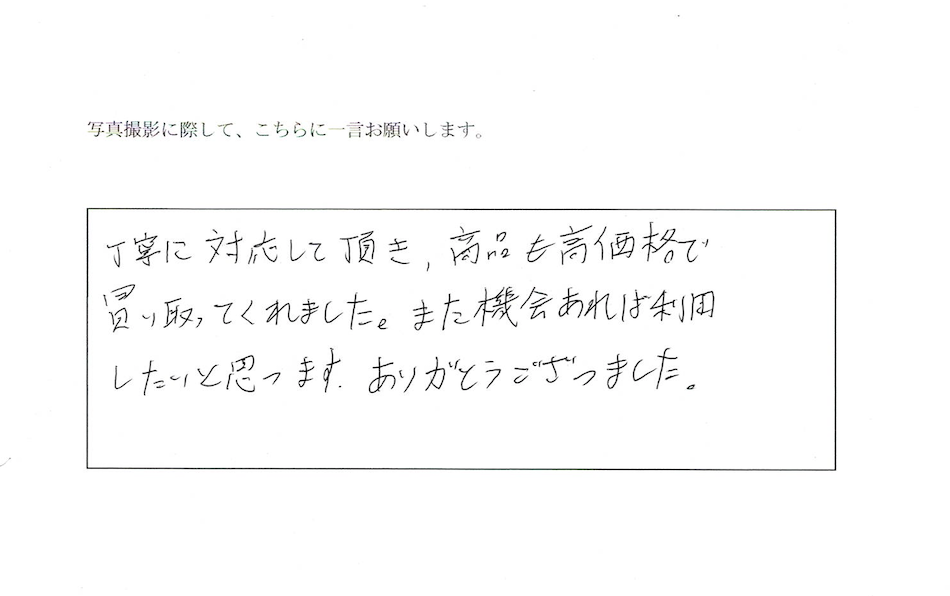 写真撮影に際して、こちらに一言お願いします。
丁寧に対応して頂き,商品も高価格で
買い取ってくれました。また機会あれば利用
したいと思います.ありがとうございました。